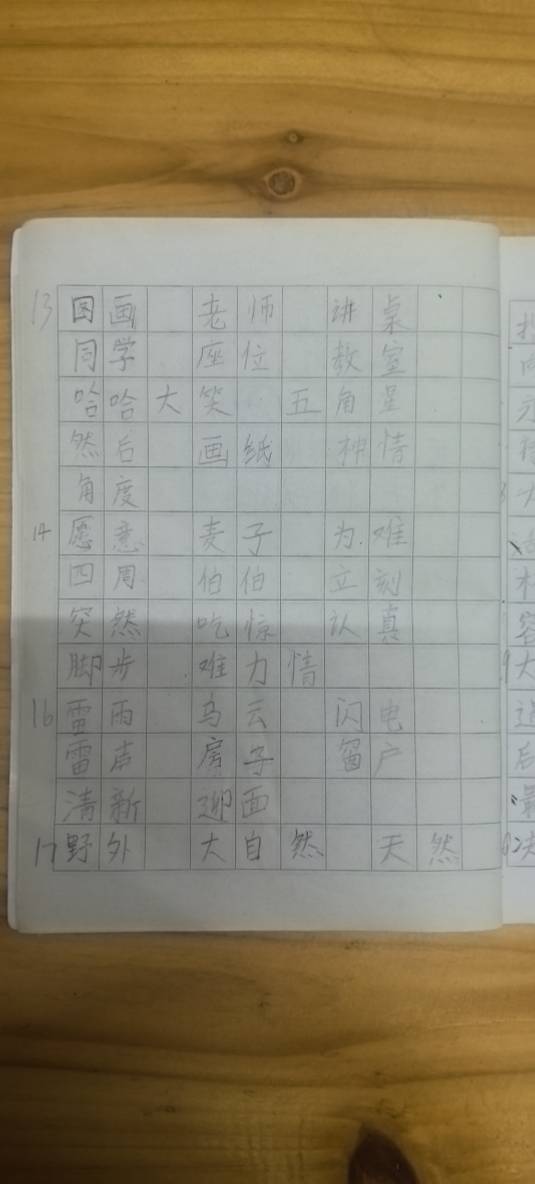 13 图画 老师 讲桌
同学 座位 教室
哈哈大笑 五角星
然后 画纸 神情
角度
14 愿意 麦子 为难
四周 伯伯 立刻
突然 吃惊 认真
脚步 难力情
16 雷雨 乌云 闪电
雷声 房子 窗户
清新 迎面
17 野外 大自然 天然